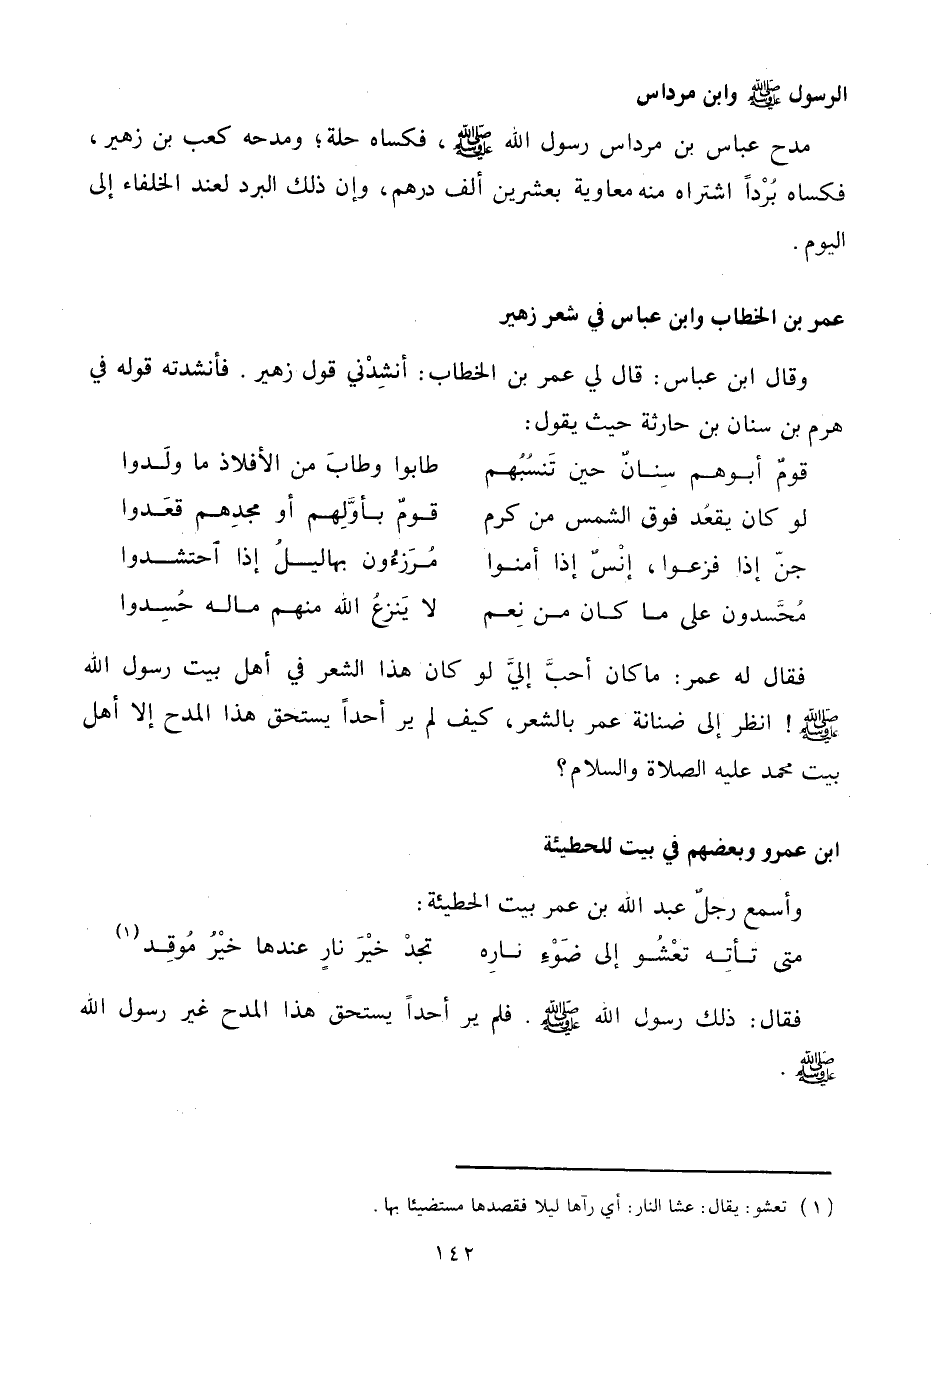 الرسول ﷺ وابن مرداس
مدح عباس بن مرداس رسول الله ﷺ ، فكساه حلة؛ ومدحه كعب بن زهير ،
فكساه بُرْداً اشتراه منه معاوية بعشرين ألف درهم، وإن ذلك البرد لعند الخلفاء إلى
اليوم .
عمر بن الخطاب وابن عباس في شعر زهير
وقال ابن عباس: قال لي عمر بن الخطاب: أنشِدْني قول زهير . فأنشدته قوله في
هرم بن سنان بن حارثة حيث يقول:
قومٌ أبوهم سِنانٌ حين تَنسُبُهم طابوا وطابَ من الأفلاذ ما ولَدوا
لو كان يقعُد فوق الشمس من كرم قومٌ بأوَّلِهم أو مجدِهم قعَدوا
جنّ إذا فزعوا، إنْسٌ إذا أمنوا مُرَزءُون بهاليلُ إذا آحتشدوا
مُحَّسدون على ما كان من نِعم لا يَنزعُ الله منهم ماله حُسِدوا
فقال له عمر: ماكان أحبَّ إليَّ لو كان هذا الشعر في أهل بيت رسول الله
ﷺ ! انظر إلى ضنانة عمر بالشعر، كيف لم ير أحداً يستحق هذا المدح إلا أهل
بيت محمد عليه الصلاة والسلام؟
ابن عمرو وبعضهم في بيت للحطيئة
وأسمع رجلٌ عبد الله بن عمر بيت الحطيئة:
متى تأتِه تعْشُو إلى ضَوْءِ نارِه تجدْ خيْرَ نارٍ عندها خيْرُ مُوقِد(١)
فقال: ذلك رسول الله ﷺ . فلم ير أحداً يستحق هذا المدح غير رسول الله
ﷺ .
(١) تعشو: يقال: عشا النار: أي رآها ليلا فقصدها مستضيئا بها .
١٤٢